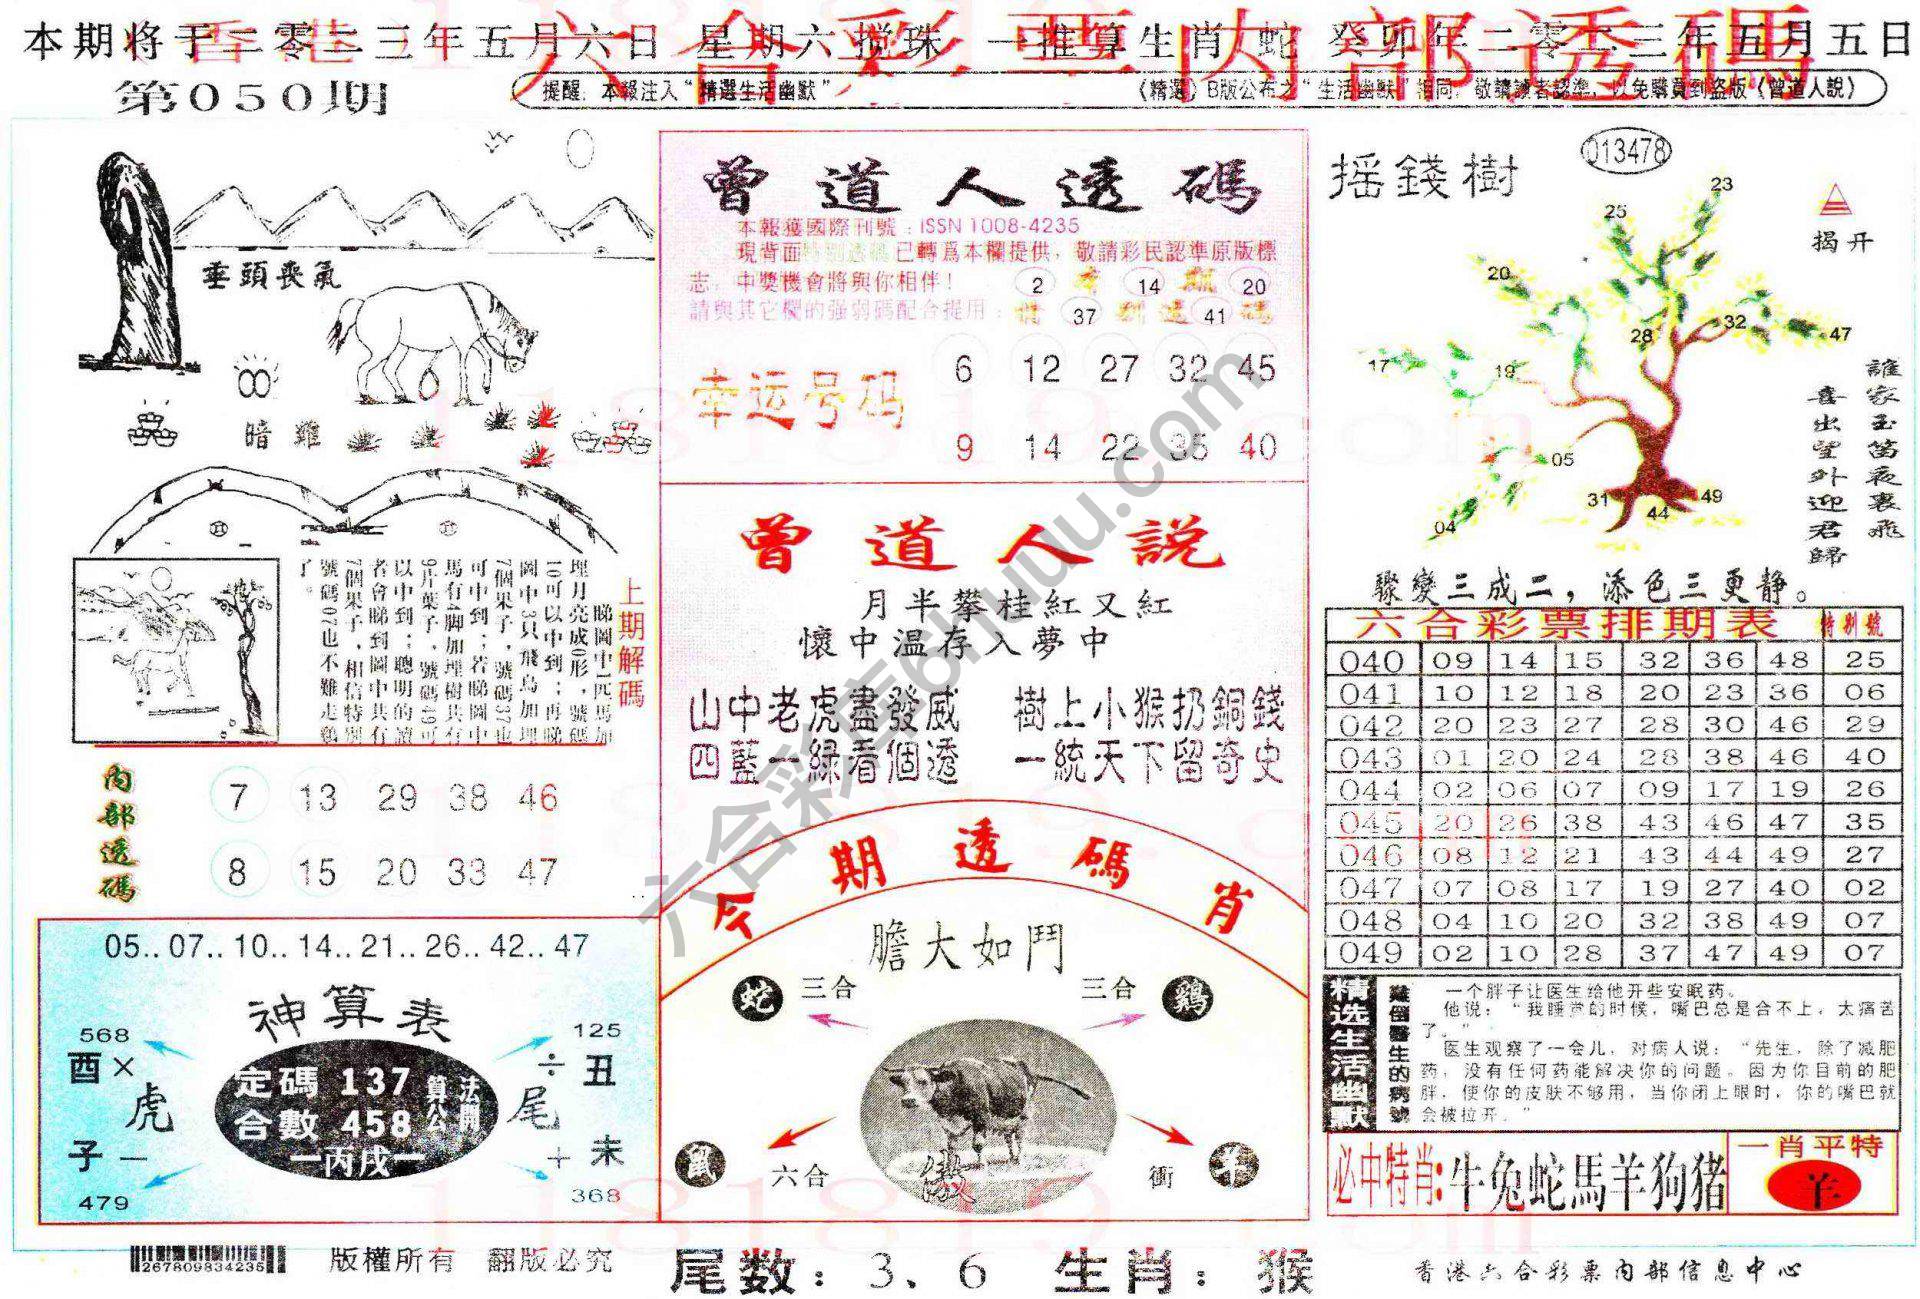 香港六合彩票内部透碼
本期将于二零二三年五月六日 星期六搅珠 一推算生肖 蛇 癸卯年二零二三年五月五日
第050期
提醒：本報注入“精選生活幽默”
《精選》B版公布之“生活幽默”相同，敬請讀者認準，以免購買到盗版《曾道人説》
垂頭喪氣
暗 難
上期解碼
睇圖中1匹馬加
埋月亮成0形，號碼
10可以中到；再睇
圖中3只飛鳥加埋
7個果子，號碼37也
可中到；若睇圖中
馬有4脚加埋樹共有
9片葉子，號碼49可
以中到；聰明的讀
者會睇到圖中共有
7個果子，相信特别
號碼07也不難走鷄
了。
内部透碼
7 13 29 38 46
8 15 20 33 47
05..07..10..14..21..26..42..47
神算表
568
酉×
虎
子一
479
定碼 137
合數 458
算公
法開
一丙戌一
125
÷丑
尾
+未
368
267809834235
版權所有 翻版必究
曾道人透碼
本報獲國際刊號：ISSN 1008-4235
現背面特别透碼已轉爲本欄提供，敬請彩民認準原版標
志，中獎機會將與你相伴！
請與其它欄的强弱碼配合提用：
本期
特别透碼
2 14 20
37 41
幸运号码
6 12 27 32 45
9 14 22 35 40
曾道人説
月半攀桂紅又紅
懷中温存入夢中
山中老虎盡發威 樹上小猴扔銅錢
四藍一緑看個透 一統天下留奇史
今期透碼肖
膽大如鬥
蛇 三合 三合 鷄
鼠 六合 衝 羊
傲
尾数：3、6 生肖：猴
摇錢樹
013478
揭开
23
25
20
28
32
47
17
19
05
31
44
49
04
誰家玉笛夜裏飛
喜出望外迎君歸
驟變三成二，添色三更静。
六合彩票排期表 特别號
040 09 14 15 32 36 48 25
041 10 12 18 20 23 36 06
042 20 23 27 28 30 46 29
043 01 20 24 28 38 46 40
044 02 06 07 09 17 19 26
045 20 26 38 43 46 47 35
046 08 12 21 43 44 49 27
047 07 08 17 19 27 40 02
048 04 10 20 32 38 49 07
049 02 10 28 37 47 49 07
精选生活幽默
難倒醫生的病號
一个胖子让医生给他开些安眠药。
他说：“我睡觉的时候，嘴巴总是合不上，太痛苦
了。”
医生观察了一会儿，对病人说：“先生，除了减肥
药，没有任何药能解决你的问题。因为你目前的肥
胖，使你的皮肤不够用，当你闭上眼时，你的嘴巴就
会被拉开。”
必中特肖：牛兔蛇馬羊狗猪
一肖平特
羊
香港六合彩票内部信息中心
六合彩库6huu.com
118189.com
118189.com
118189.com